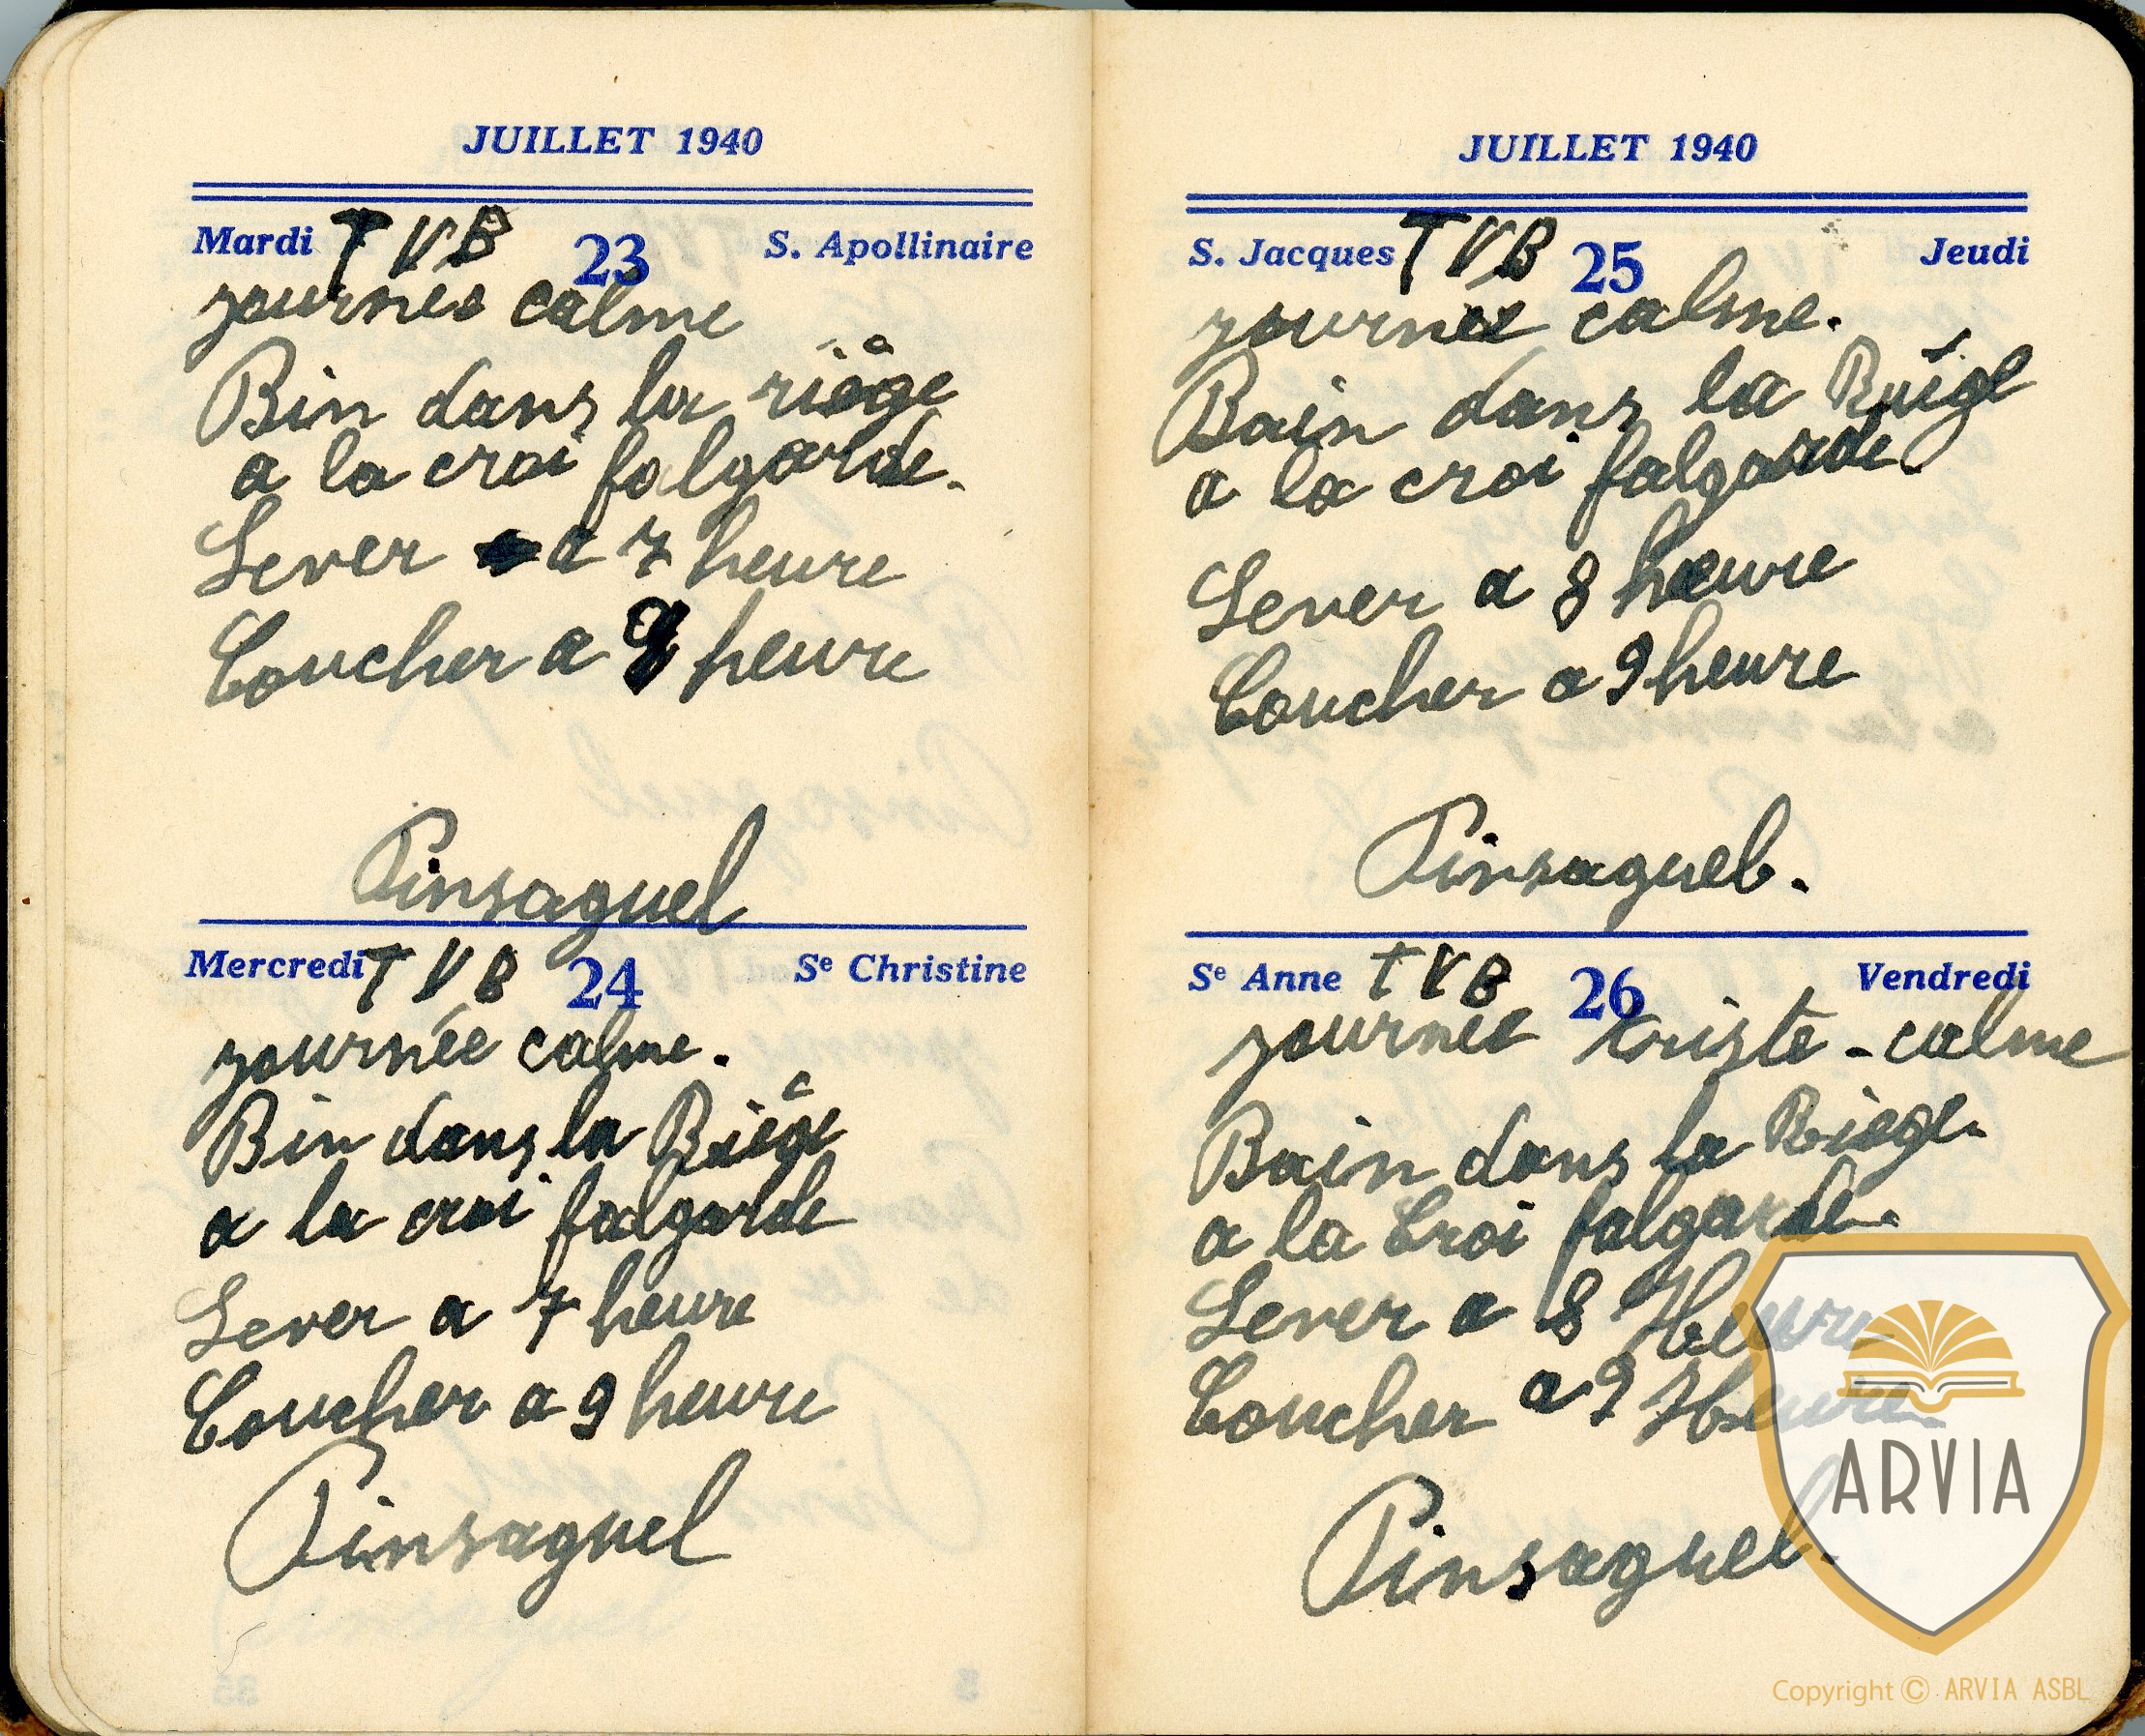 JUILLET 1940
Mardi T V B 23 S. Apollinaire
journée calme
Bin dans la riège
a la croi falgarde.
Lever a 7 heure
Coucher a 9 heure
Pinsaguel
Mercredi T V B 24 Se Christine
journée calme.
Bin dans la Riège
a la croi falgarde
Lever a 7 heure
Coucher a 9 heure
Pinsaguel
JUILLET 1940
S. Jacques T V B 25 Jeudi
journée calme.
Bain dans la
a la croi falgarde.
Lever a 8 heure
Coucher a 9 heure
Pinsaguel.
Se Anne T V B 26 Vendredi
journée triste - calme
Bain dans la Riege.
a la Croi falgarde.
Lever a 8 Heure
Coucher a 9 Heure.
Pinsaguel.
ARVIA
Copyright © ARVIA ASBL